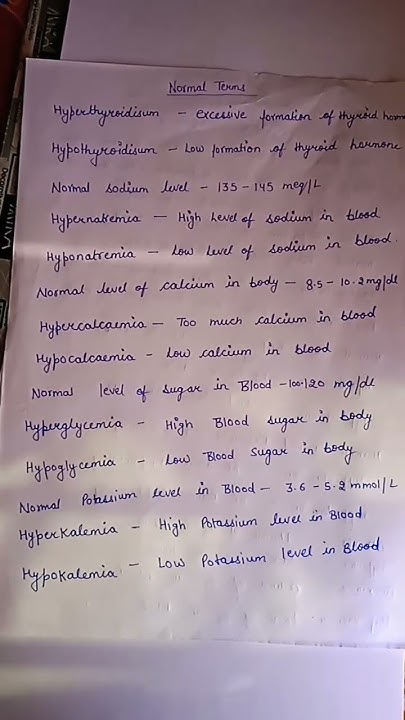 Normal Terms
Hyperthyroidisum - excessive formation of thyroid horm
Hypothyroidisum - Low formation of thyroid hormone
Normal sodium level - 135 - 145 meg/L
Hypernatremia - High Level of sodium in blood
Hyponatremia - Low Level of sodium in blood.
Normal level of calcium in body - 8.5 - 10.2 mg/dl
Hypercalcaemia - Too much calcium in blood
Hypocalcaemia - Low calcium in blood
Normal level of sugar in Blood - 100-120 mg/dl
Hyperglycemia - High Blood sugar in body
Hypoglycemia - Low Blood Sugar in body
Normal Potassium level in Blood - 3.6 - 5.2 mmol/L
Hyperkalemia - High Potassium level in Blood
Hypokalemia - Low Potassium level in Blood